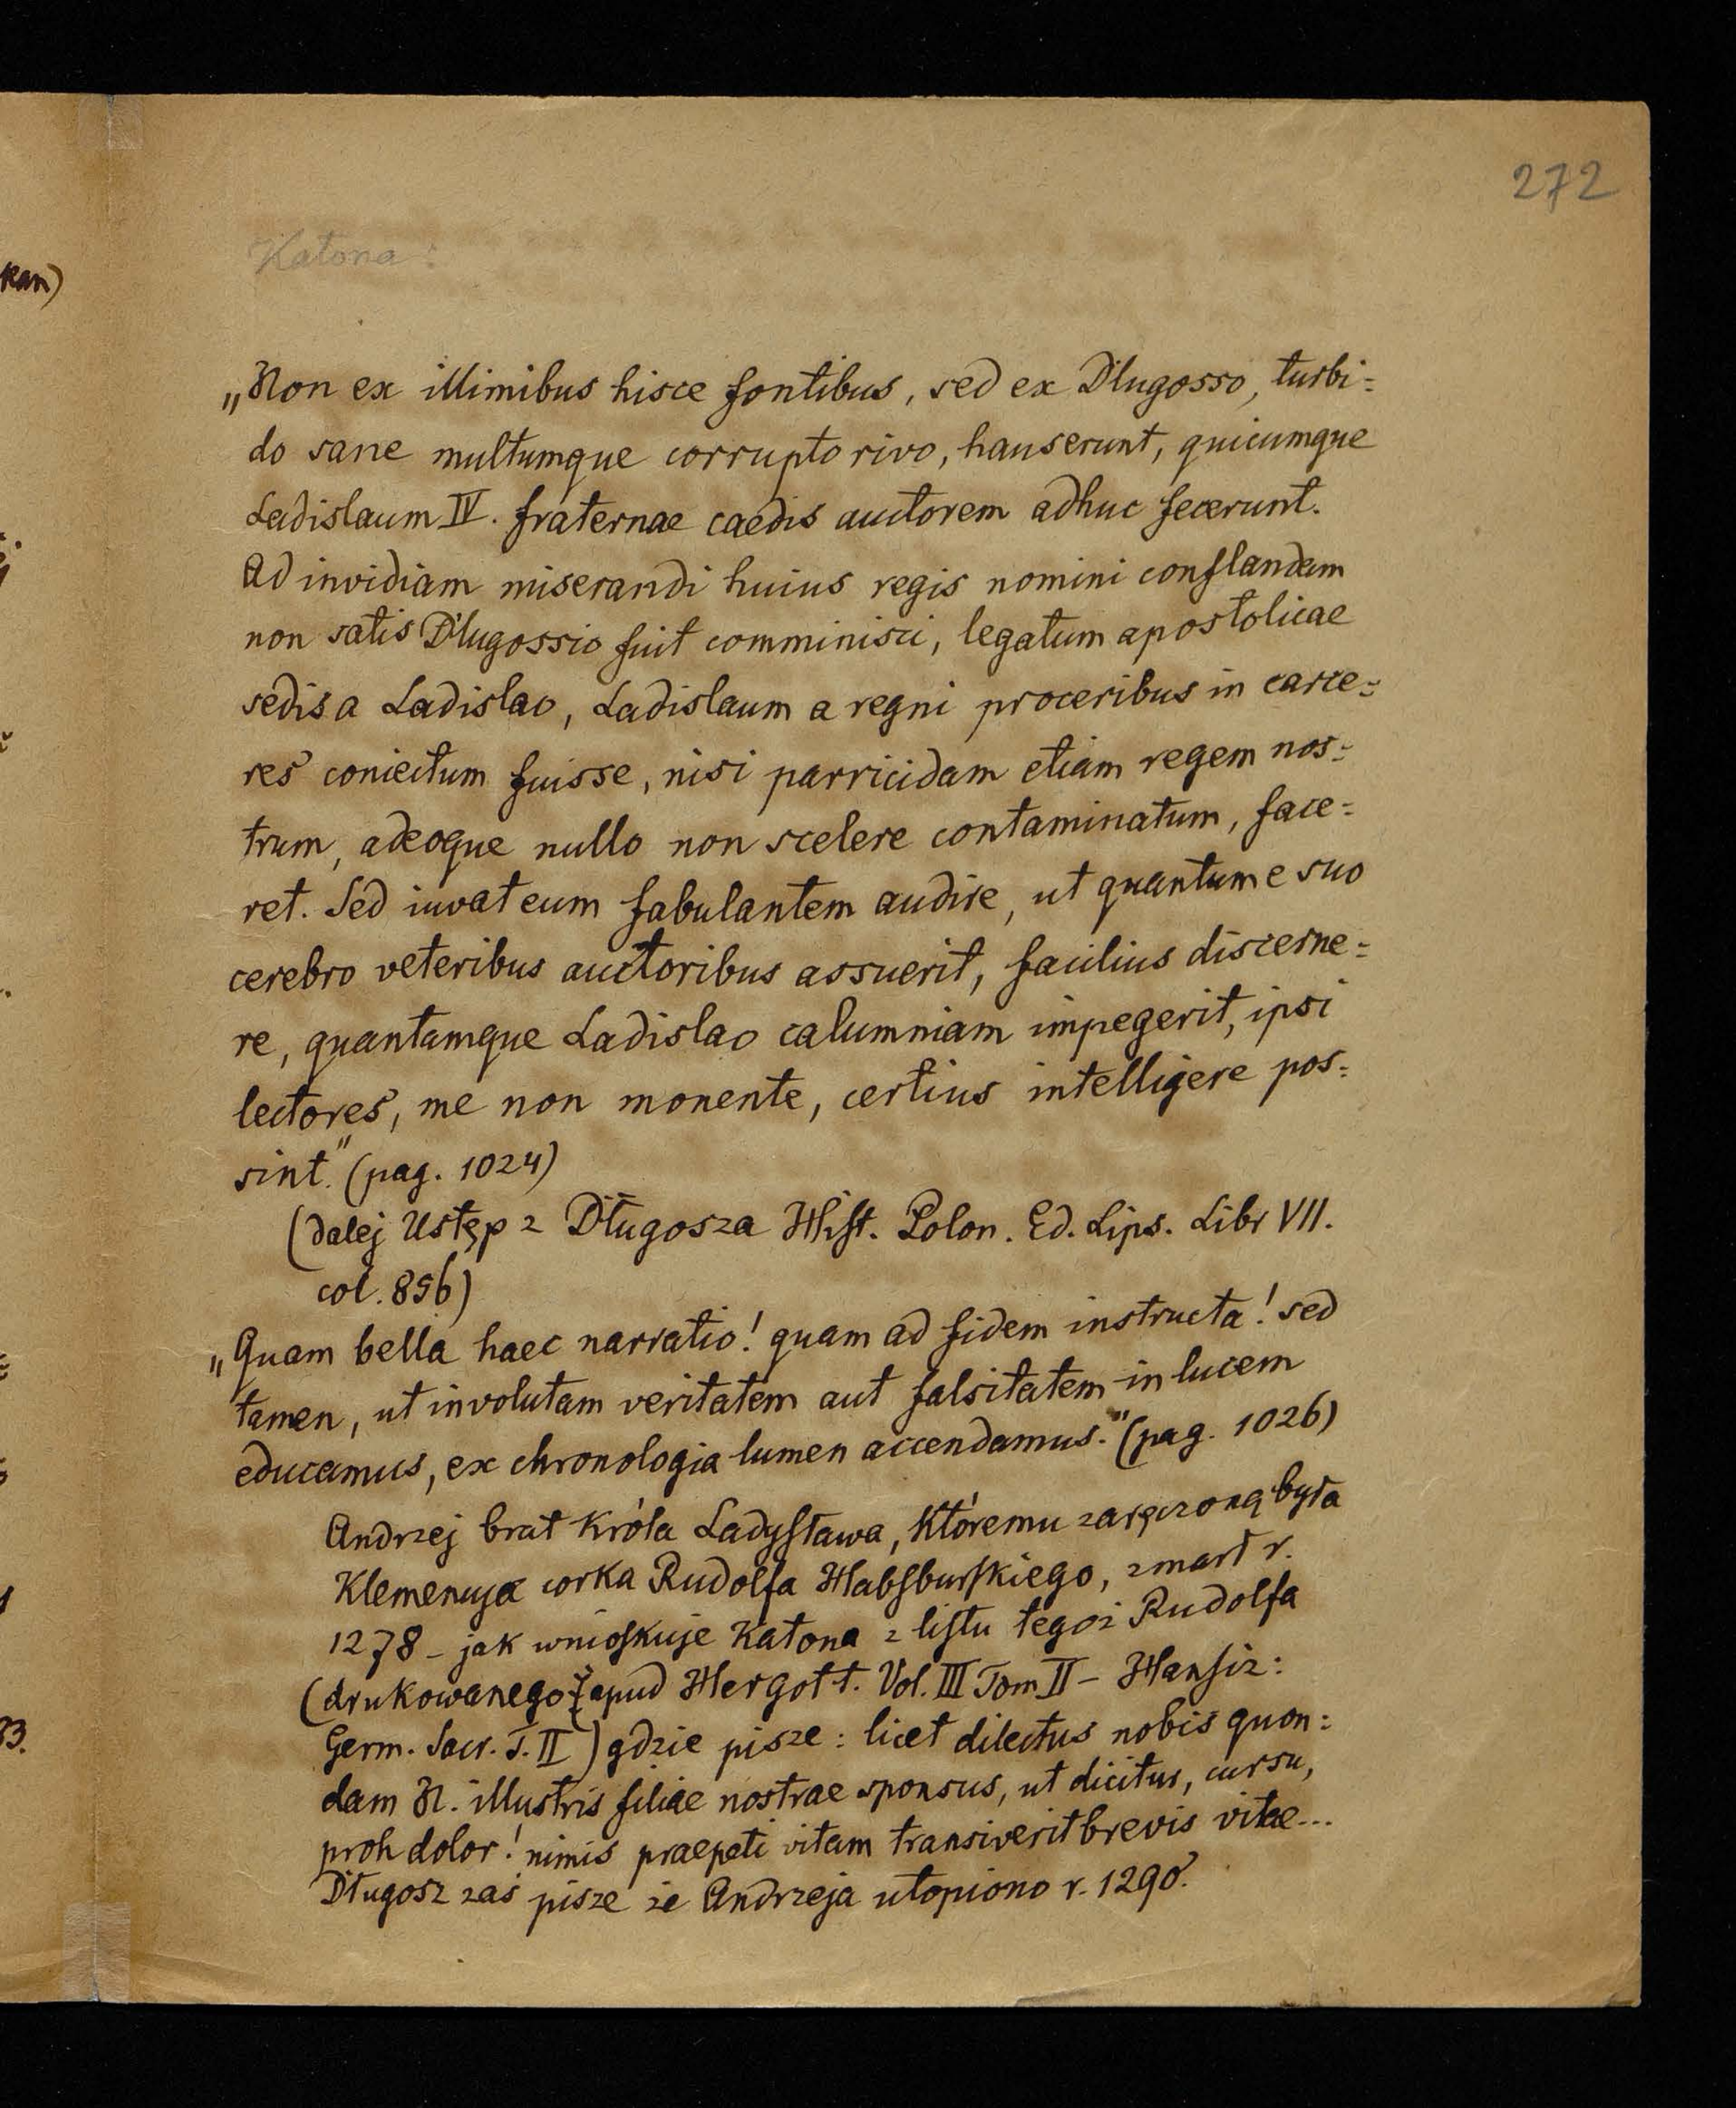 272
Katona:
„Non ex illimibus hisce fontibus, sed ex Dlugosso, turbi=
do sane multumque corrupto rivo, hauserunt, quicumque
Ladislaum IV. fraternae caedis auctorem adhuc fecerunt.
Ad invidiam miserandi huius regis nomini conflandam
non satis Dlugossio fuit comminisci, legatum apostolicae
sedis a Ladislao, Ladislaum a regni proceribus in carce=
res coniectum fuisse, nisi parricidam etiam regem nos=
trum, adeoque nullo non scelere contaminatum, face=
ret. Sed iuvat eum fabulantem audire, ut quantum e suo
cerebro veteribus auctoribus assuerit, facilius discerne=
re, quantamque Ladislao calumniam impegerit, ipsi
lectores, me non monente, certius intelligere pos=
sint." (pag. 1024)
(dalej Ustęp z Długosza Hist. Polon. Ed. Lips. Libr VII.
col. 856)
„Quam bella haec narratio! quam ad fidem instructa! sed
tamen, ut involutam veritatem aut falsitatem in lucem
educamus, ex chronologia lumen accendamus." (pag. 1026)
Andrzej brat Króla Ladysława, któremu zaręczoną była
Klemencya corka Rudolfa Habsburskiego, zmarł r.
1278 - jak wnioskuje Katona z listu tegoż Rudolfa
(drukowanego apud Hergott. Vol. III Tom II - Hansiz:
Germ. Sacr. T. II) gdzie pisze: licet dilectus nobis quon=
dam N. illustris filiae nostrae sponsus, ut dicitur, cursu,
proh dolor! nimis praepeti vitam transiverit brevis vitae...
Długosz zaś pisze że Andrzeja utopiono r. 1290.
kan)
33.